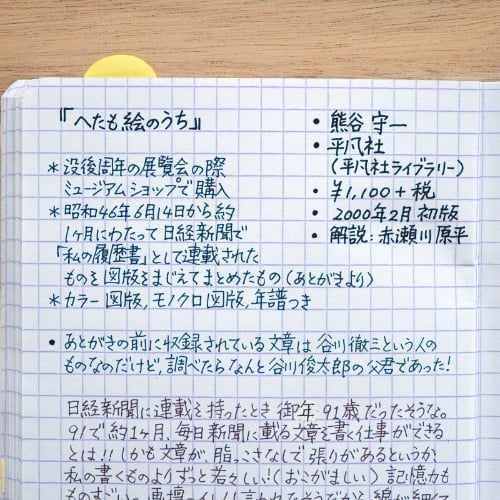 『へたも絵のうち』
＊没後周年の展覧会の際
ミュージアムショップで購入
＊昭和46年6月14日から約
1ヶ月にわたって日経新聞で
「私の履歴書」として連載された
ものを図版をまじえてまとめたもの（あとがきより）
＊カラー図版,モノクロ図版,年譜つき
• 熊谷守一
• 平凡社
（平凡社ライブラリー）
• ¥1,100+税
• 2000年2月初版
• 解説:赤瀬川原平
• あとがきの前に収録されている文章は谷川徹三という人の
ものなのだけど,調べたらなんと谷川俊太郎の父君であった!
日経新聞に連載を持ったとき御年91歳だったそうな。
91で約1ヶ月,毎日新聞に載る文章を書く仕事ができる
とは!!しかも文章が,脂っこさなしで張りがあるというか,
私の書くものよりずっと若々しい!(おこがましい) 記憶力も
ものすごい。